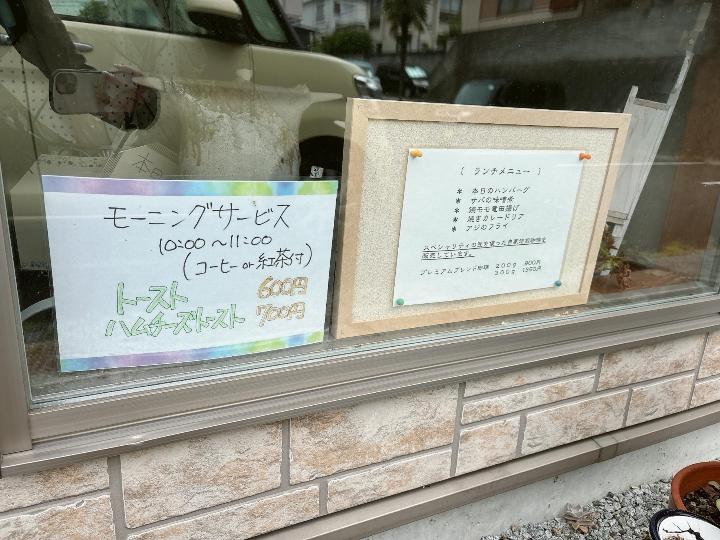 モーニングサービス
10:00～11:00
(コーヒー or 紅茶付)
トースト 600円
ハムチーズトースト 700円
[ ランチメニュー ]
* 本日のハンバーグ
* サバの味噌煮
* 鶏モモ竜田揚げ
* 焼きカレードリア
* アジのフライ
スペシャリティの豆を使った自家焙煎珈琲を
販売しています。
プレミアムブレンド珈琲 200g 900円
300g